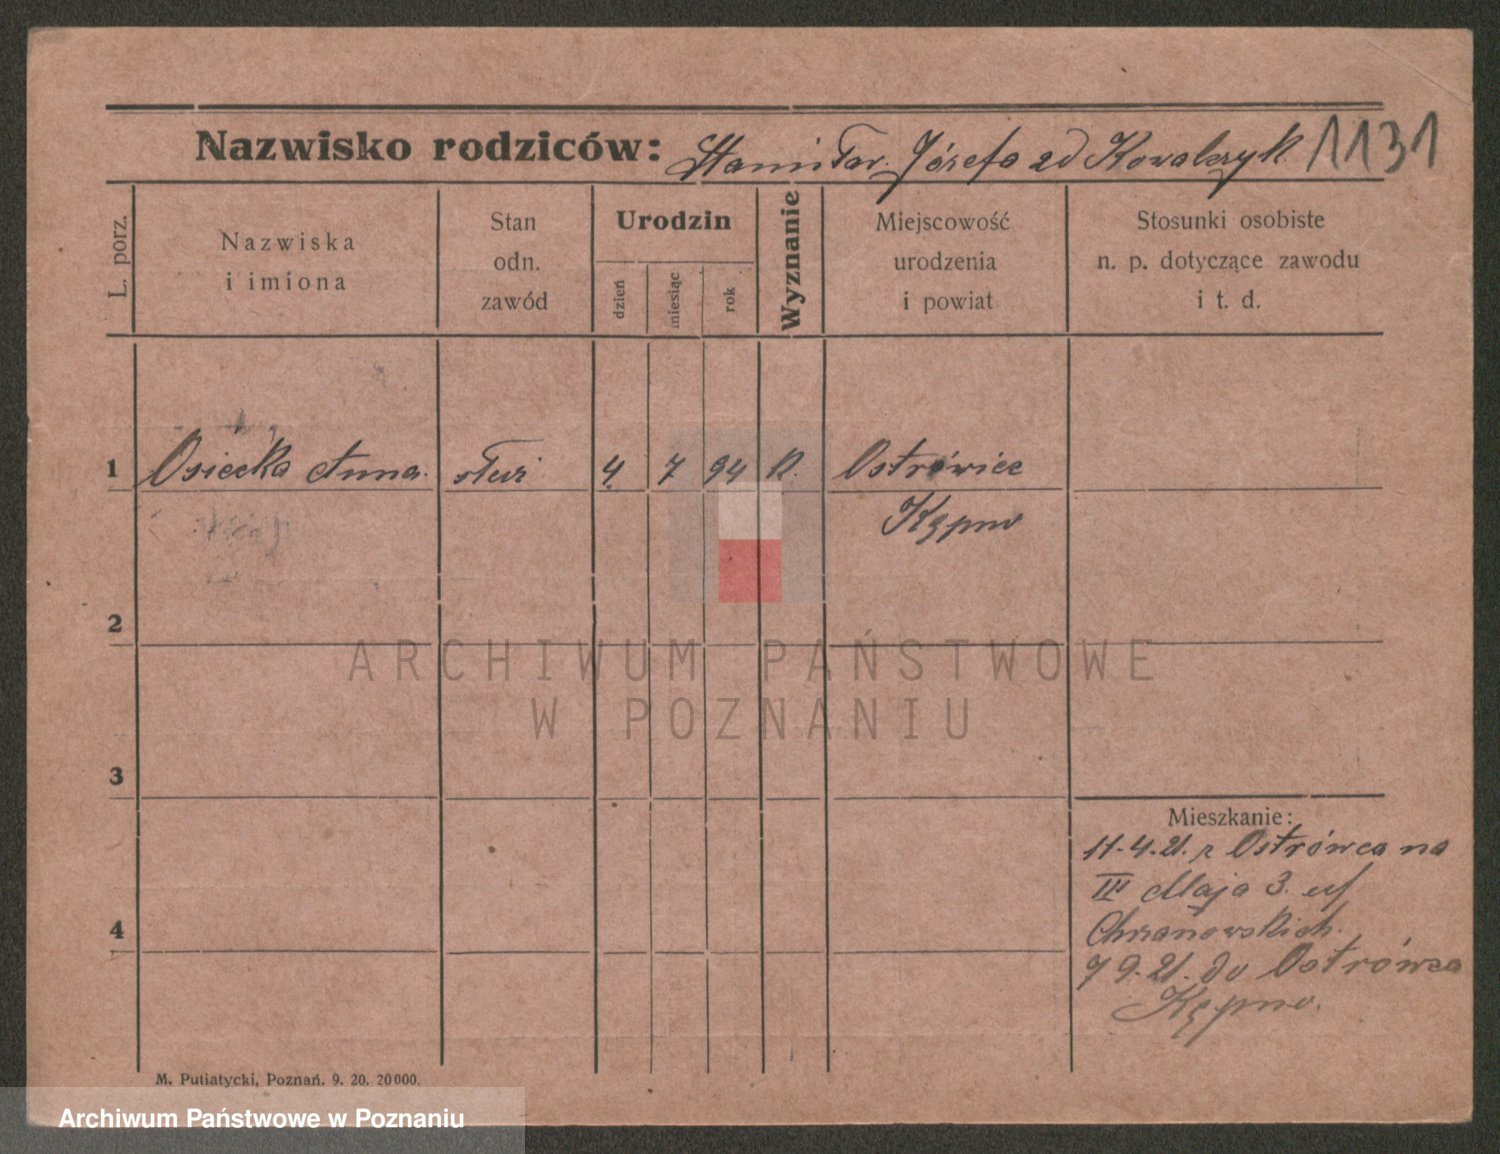 Nazwisko rodziców: Stanisław. Józefa zd Kowalczyk 1131
L. porz.
Nazwiska
i imiona
Stan
odn.
zawód
Urodzin
dzień
miesiąc
rok
Wyznanie
Miejscowość
urodzenia
i powiat
Stosunki osobiste
n. p. dotyczące zawodu
i t. d.
1 Osiecka Anna. służ 4 7 94 k. Ostrówiec
Kępno
2
3
4
ARCHIWUM PAŃSTWOWE
W POZNANIU
Mieszkanie:
11-4.21. z Ostrówca na
III Maja 3. u
Chrzanowskich.
7 9.21. do Ostrówca
Kępno.
M. Putiatycki, Poznań. 9. 20. 20000.
Archiwum Państwowe w Poznaniu